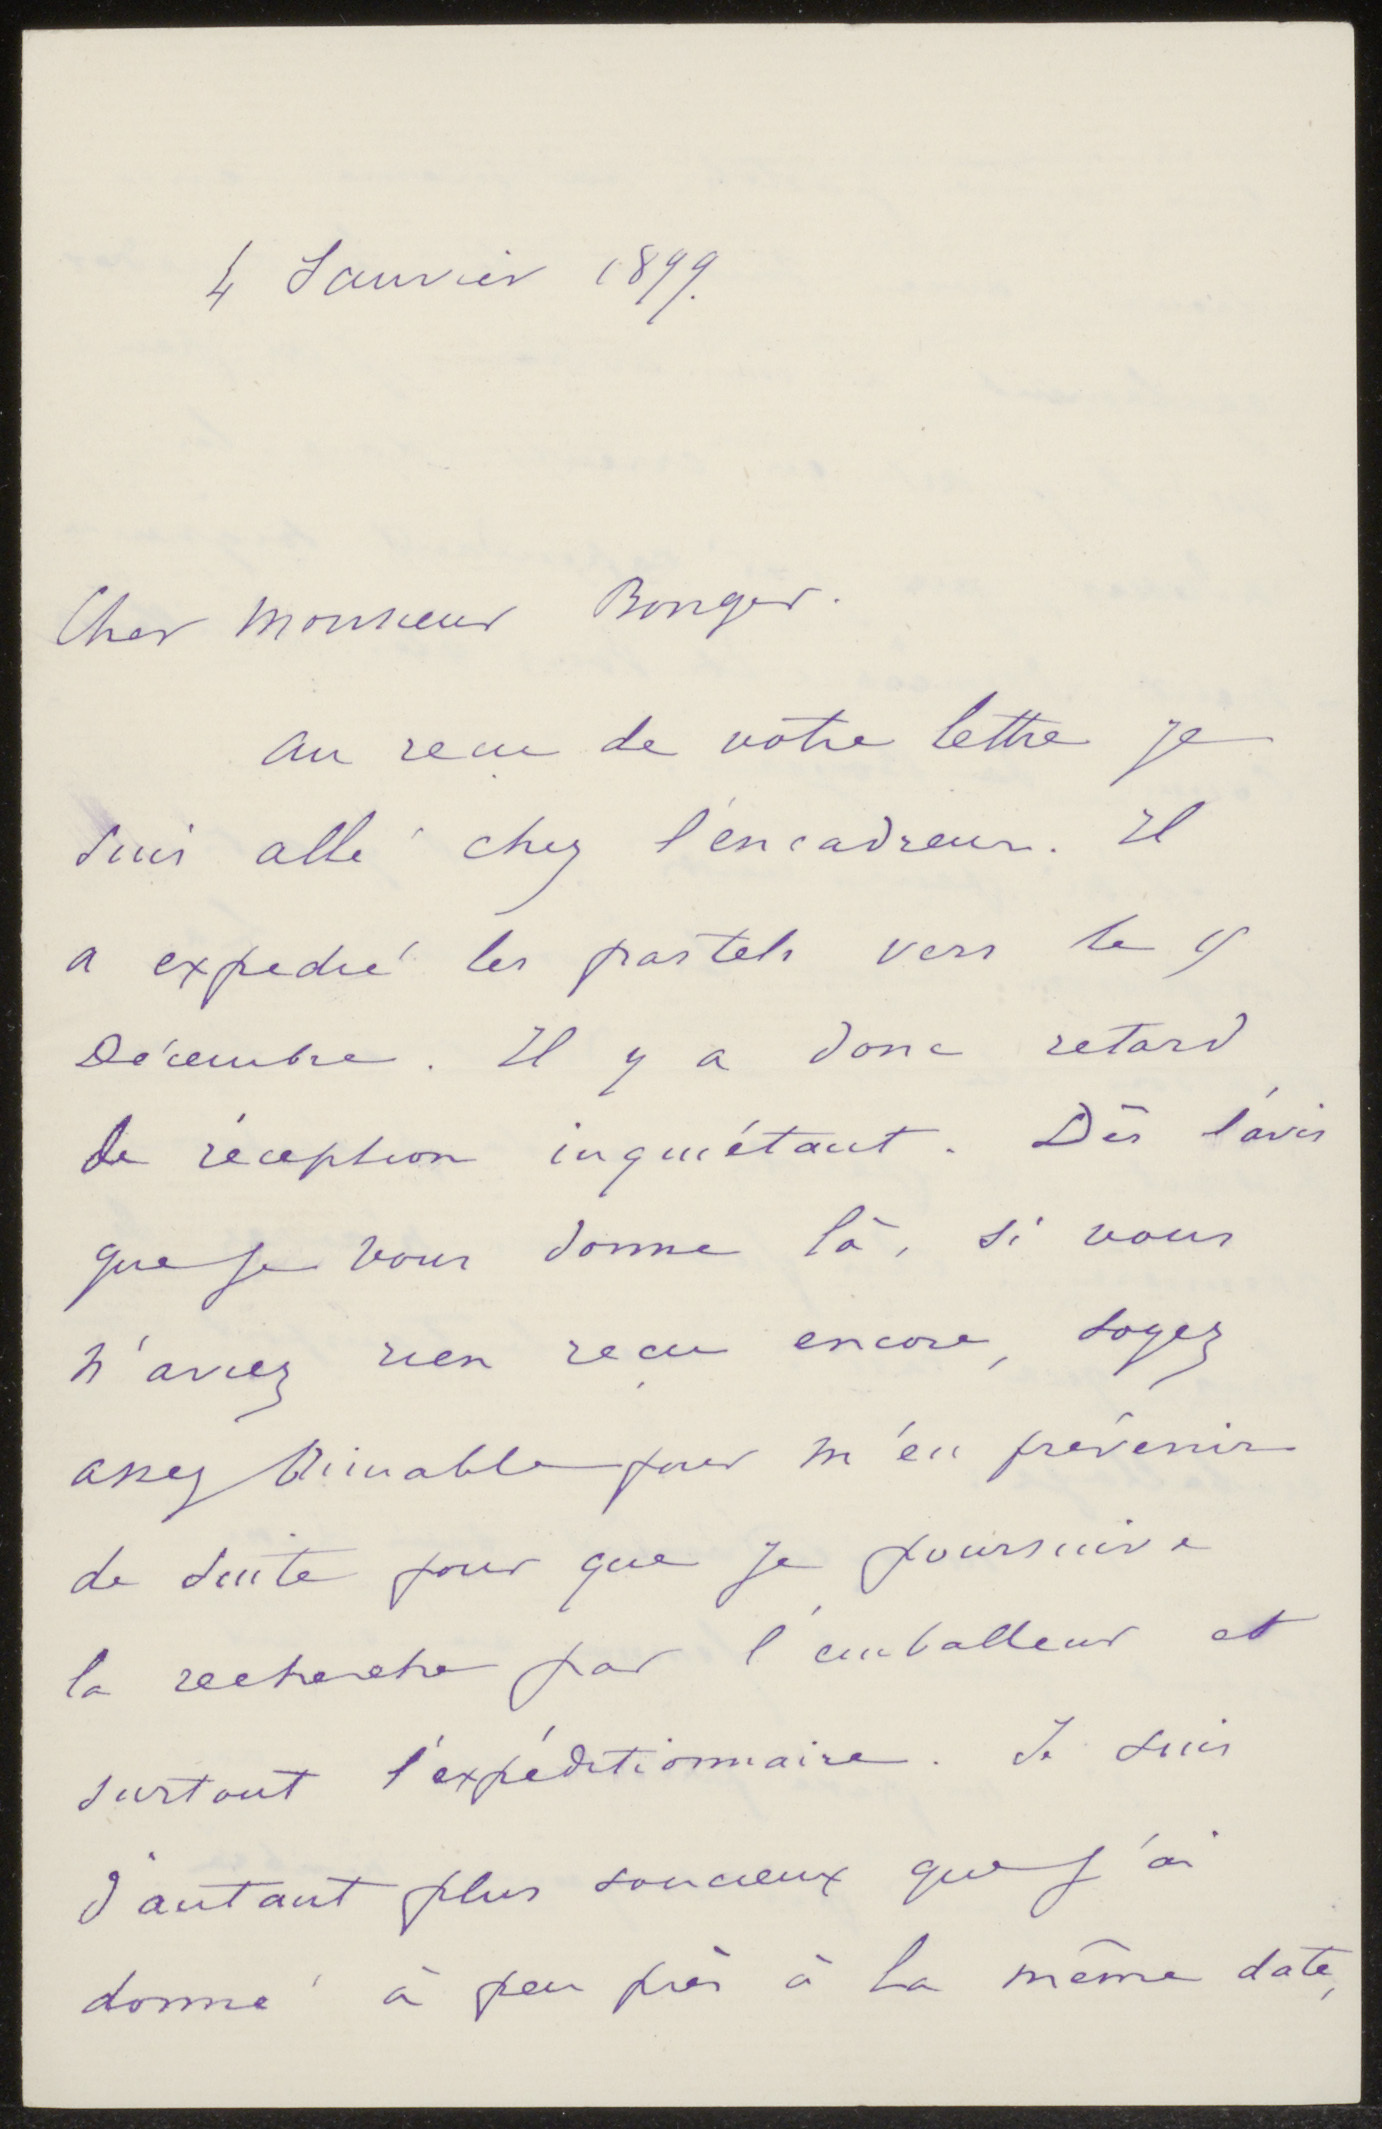 4 Janvier 1899.
Cher Monsieur Bonger.
au reçu de votre lettre je
suis allé chez l'encadreur. Il
a expedié les pastels vers le 15
Décembre. Il y a donc retard
de réception inquiétant. Dès l'avis
que je vous donne là, si vous
n'aviez rien reçu encore, soyez
assez aimable pour m'en prévenir
de suite pour que je poursuive
la recherche par l'emballeur et
surtout l'expéditionnaire. Je suis
d'autant plus soucieux que j'ai
donné à peu près à la même date,